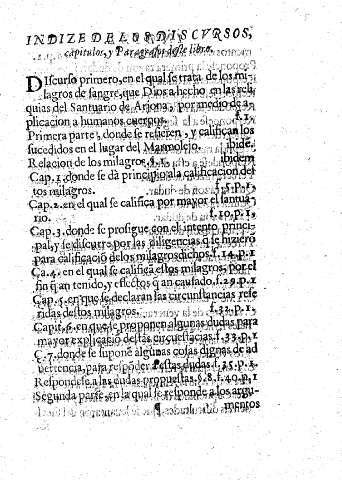 INDIZE DE LOS DISCVRSOS,
capitulos, y Paragrafos deste libro.
DIscurso primero, en el qual se trata de los mi-
lagros de sangre, que Dios a hecho en las reli-
quias del Santuario de Arjona, por medio de a-
plicacion a humanos cuerpos. f.1.
Primera parte, donde se refieren, y califican los
sucedidos en el lugar del Marmolejo. ibide.
Relacion de los milagros. §.1. ibidem
Cap.1. donde se dà principio a la calificacion del
tos milagros. f.5.p.1.
Cap.2. en el qual se califica por mayor el santua-
rio. f.10.p.1.
Cap.3. donde se prosigue con el intento princi-
pal, y se discurre por las diligencias q̃ se hiziero
para calificaciõ de los milagros dichos. f.14.p.1
Ca.4. en el qual se califica estos milagros, por el
fin q̃ an tenido, y efectos q̃ an causado. f.29.p.1
Cap.5. en que se declaran las circunstancias refe
ridas destos milagros. f.32.p.1.
Capit.6. en que se proponen algunas dudas para
mayor explicaciõ destas circunstãcias. f.33.p.1
C.7. donde se suponẽ algunas cosas dignas de ad
vertencia, para respõder a estas dudas. f.35.p.2.
Respondese a las dudas propuestas. §.8. f.40.p.1
Segunda parte, en la qual se responde a los argu-
¶ mentos